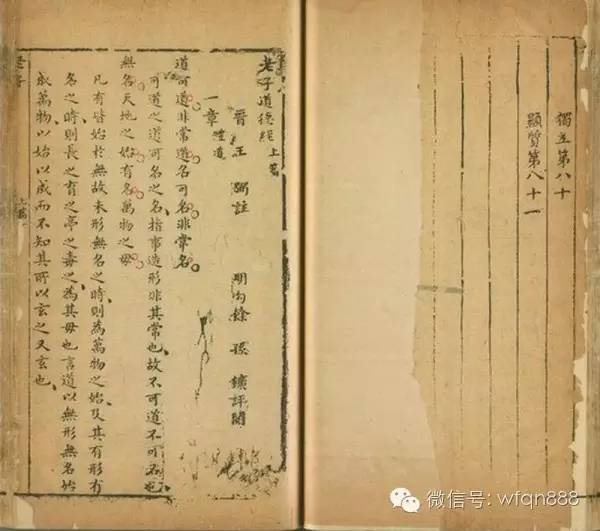 獨立第八十
顯質第八十一
老子道德經 上篇
晉 王 弼註 明 勾餘 孫 鑛評閱
一章 體道
道可道非常道名可名非常名
可道之道可名之名指事造形非其常也故不可道不可名也
無名天地之始有名萬物之母
凡有皆始於無故未形無名之時則為萬物之始及其有形有
名之時則長之育之亭之毒之為其母也言道以無形無名始
成萬物以始以成而不知其所以玄之又玄也
上篇
微信号: wfqn888